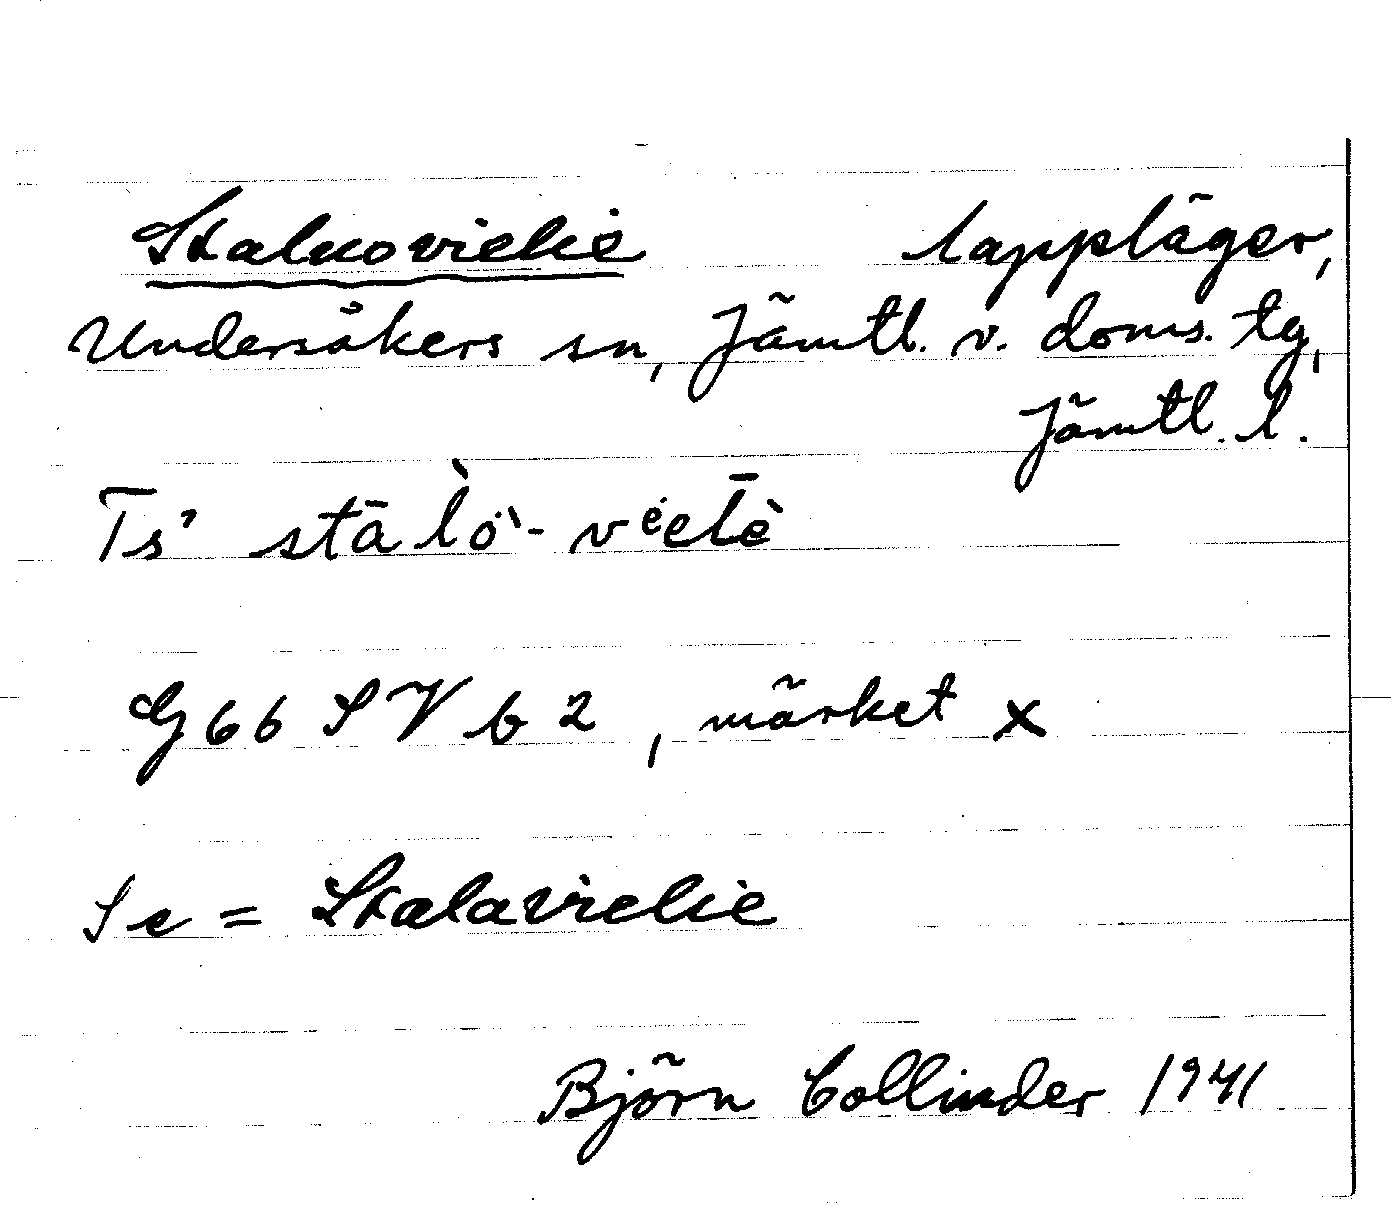 Stalkovielie lappläger,
Undersåkers sn, Jämtl. v. doms. tg,
Jämtl. l.
Ts'
G 66 SV b 2, märket x
Se = Stalavielie
Björn Collinder 1941